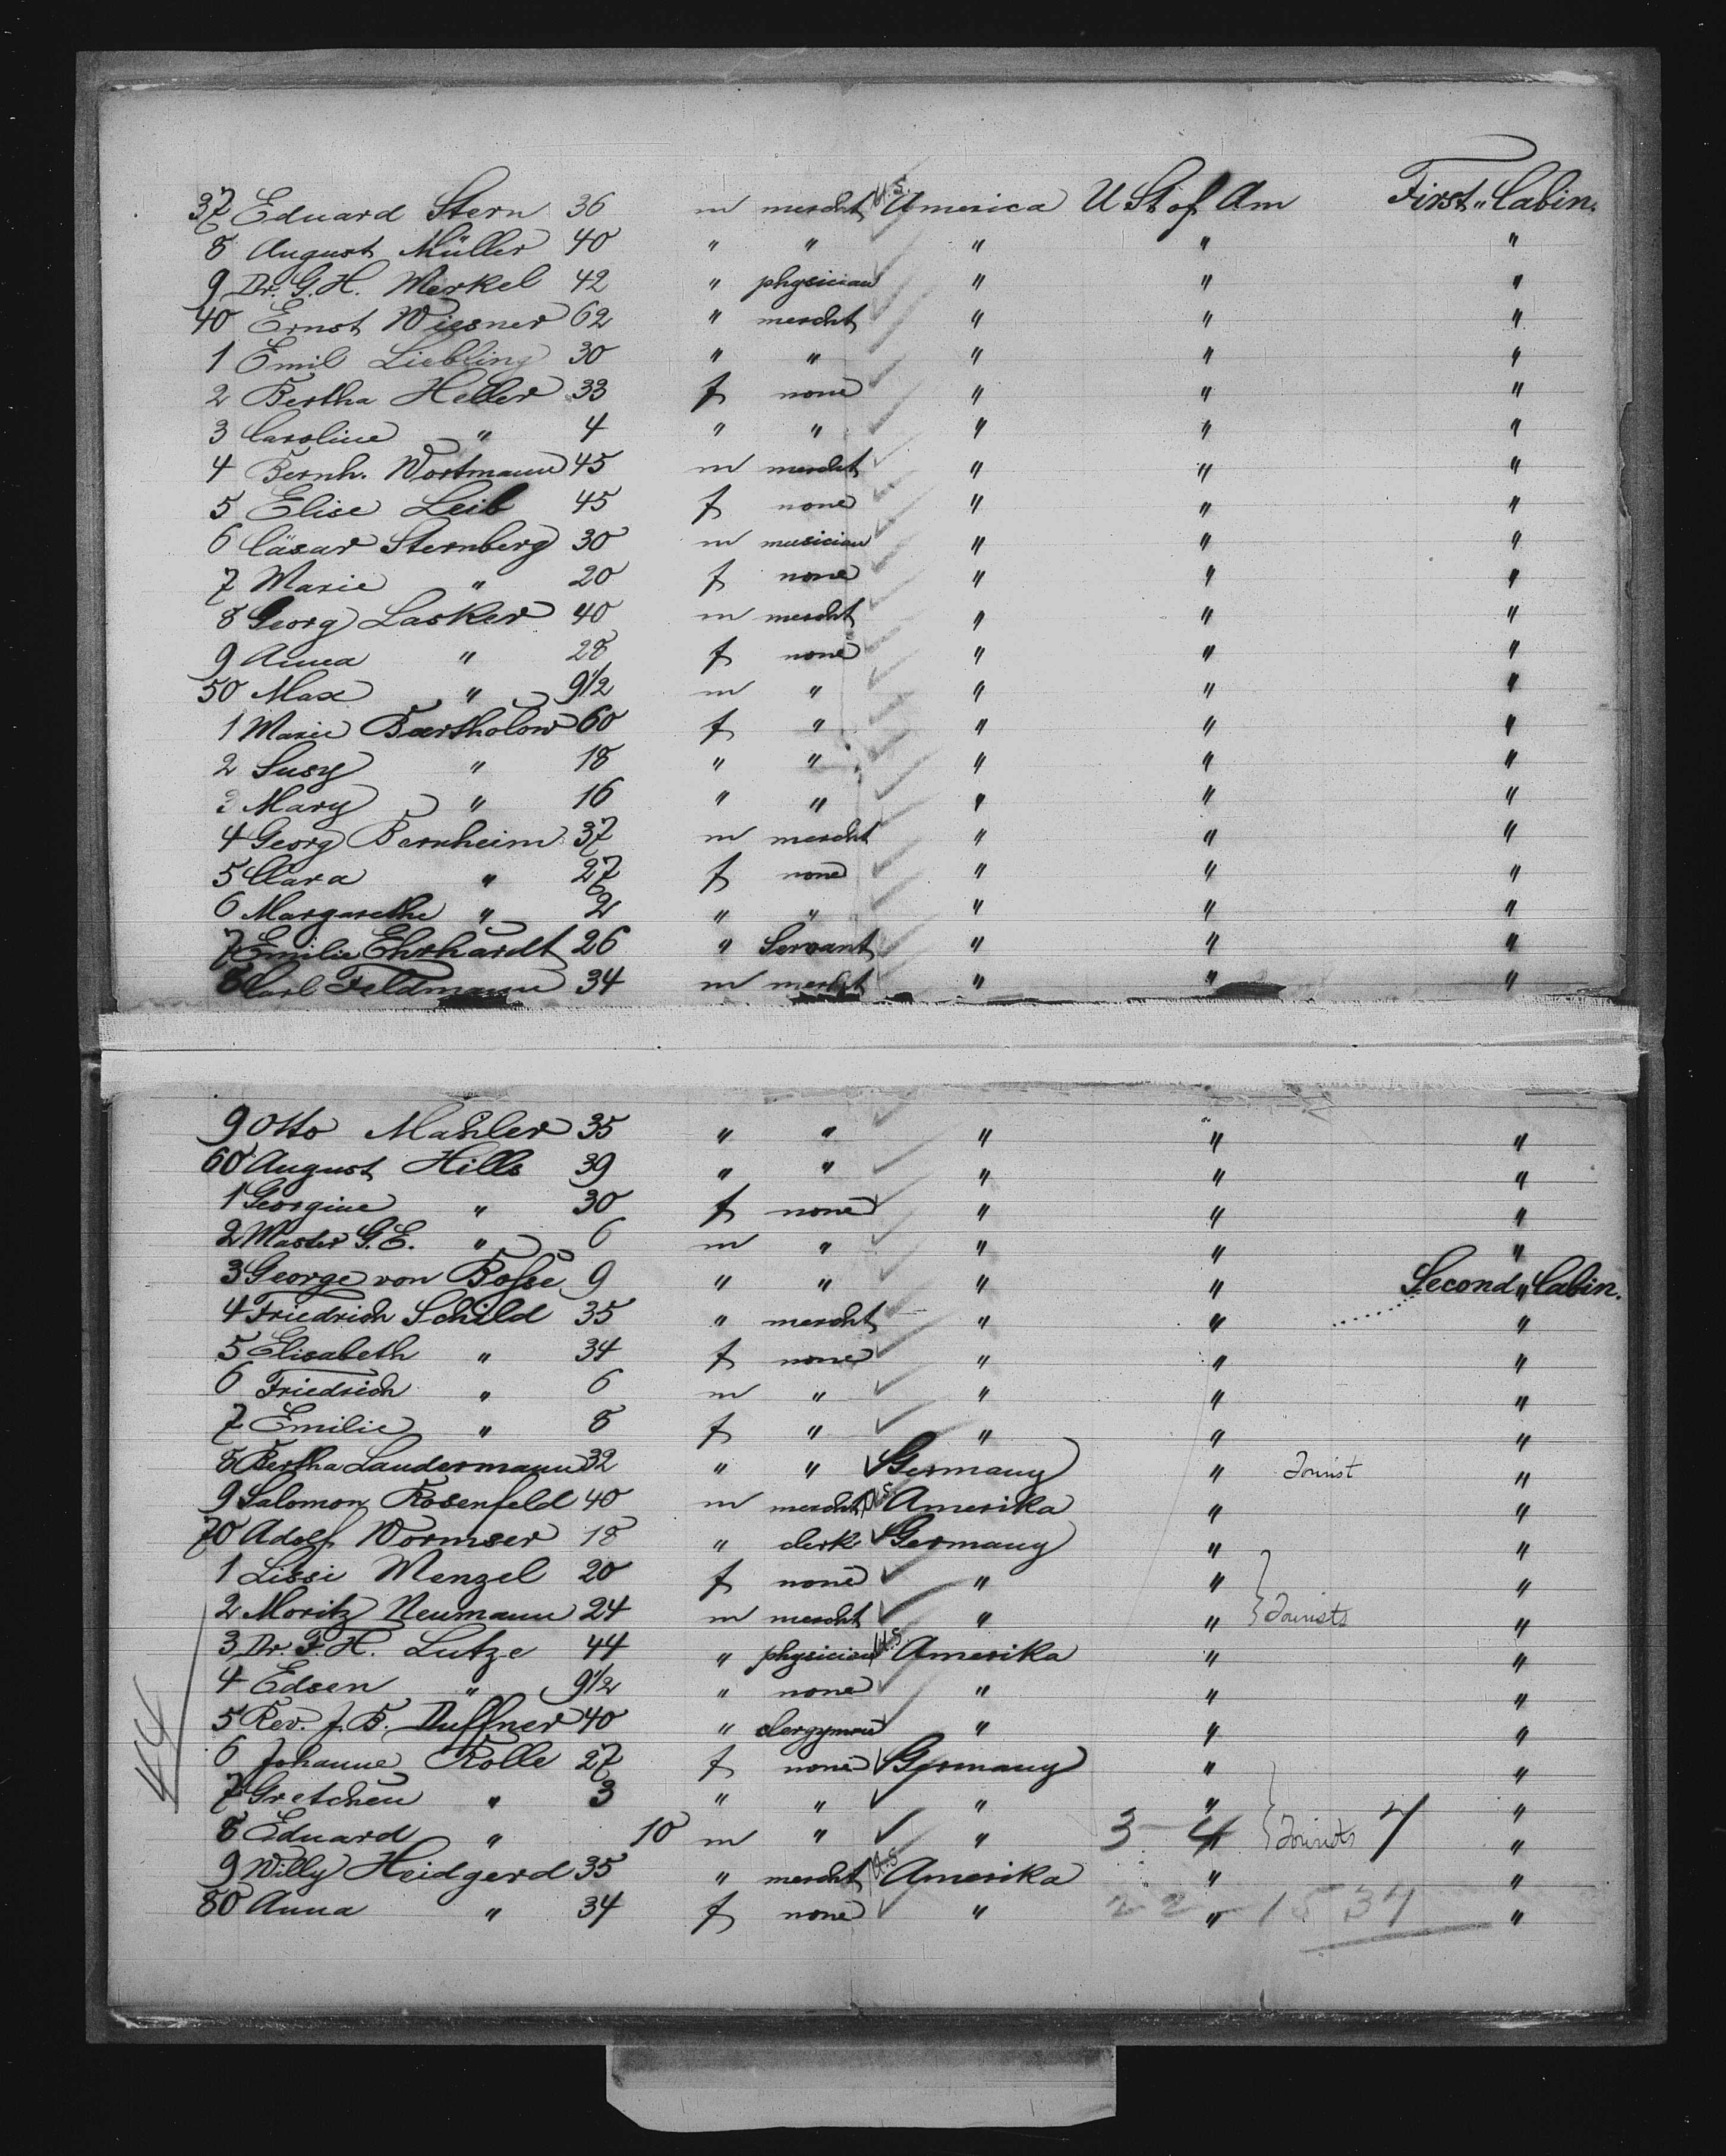 37 Eduard Stern 36 m mercht U.S. America U St of Am First „ Cabin.
8 August Müller 40 " " " " "
9 Dr. G. H. Merkel 42 " physician " " "
40 Ernst Wissner 62 " mercht " " "
1 Emil Liebling 30 " " " " "
2 Bertha Heller 33 f none " " "
3 Caroline " 4 " " " " "
4 Bernh. Wortmann 45 m mercht " " "
5 Elise Leib 45 f none " " "
6 Cäsar Sternberg 30 m musician " " "
7 Marie " 20 f none " " "
8 Georg Lasker 40 m mercht " " "
9 Anna " 28 f none " " "
50 Max " 9 1/2 m " " " "
1 Marie Bartholow 60 f " " " "
2 Susy " 18 " " " " "
3 Mary " 16 " " " " "
4 Georg Bernheim 37 m mercht " " "
5 Clara " 27 f none " " "
6 Margarethe " 2 " " " " "
7 Emilie Ehrhardt 26 " Servant " " "
8 Carl Feldmann 34 m mercht " " "
9 Otto Mahler 35 " " " " "
60 August Hills 39 " " " " "
1 Georgine " 30 f none " " "
2 Master G. E. " 6 m " " " "
3 George von Bosse 9 " " " " Second „ Cabin.
4 Friedrich Schild 35 " mercht " " "
5 Elisabeth " 34 f none " " "
6 Friedrich " 6 m " " " "
7 Emilie " 8 f " " " "
8 Bertha Laudermann 32 " " Germany " Tourist "
9 Salomon Rosenfeld 40 m mercht U.S. Amerika " "
70 Adolf Wormser 18 " clerk Germany " "
1 Lissi Menzel 20 f none " " "
2 Moritz Neumann 24 m mercht " " Tourists "
3 Dr. F. H. Lutze 44 " physician U.S. Amerika " "
4 Edsen " 9 1/2 " none " " "
5 Rev. J. B. Duffner 40 " clergyman " " "
6 Johanne Rolle 27 f none Germany " "
7 Gretchen " 3 " " " " "
8 Eduard " 10 m " " 3 - 4 " Tourists 7 "
9 Willy Heidgerd 35 " mercht U.S. Amerika " "
80 Anna " 34 f none " 22 " 1534 "